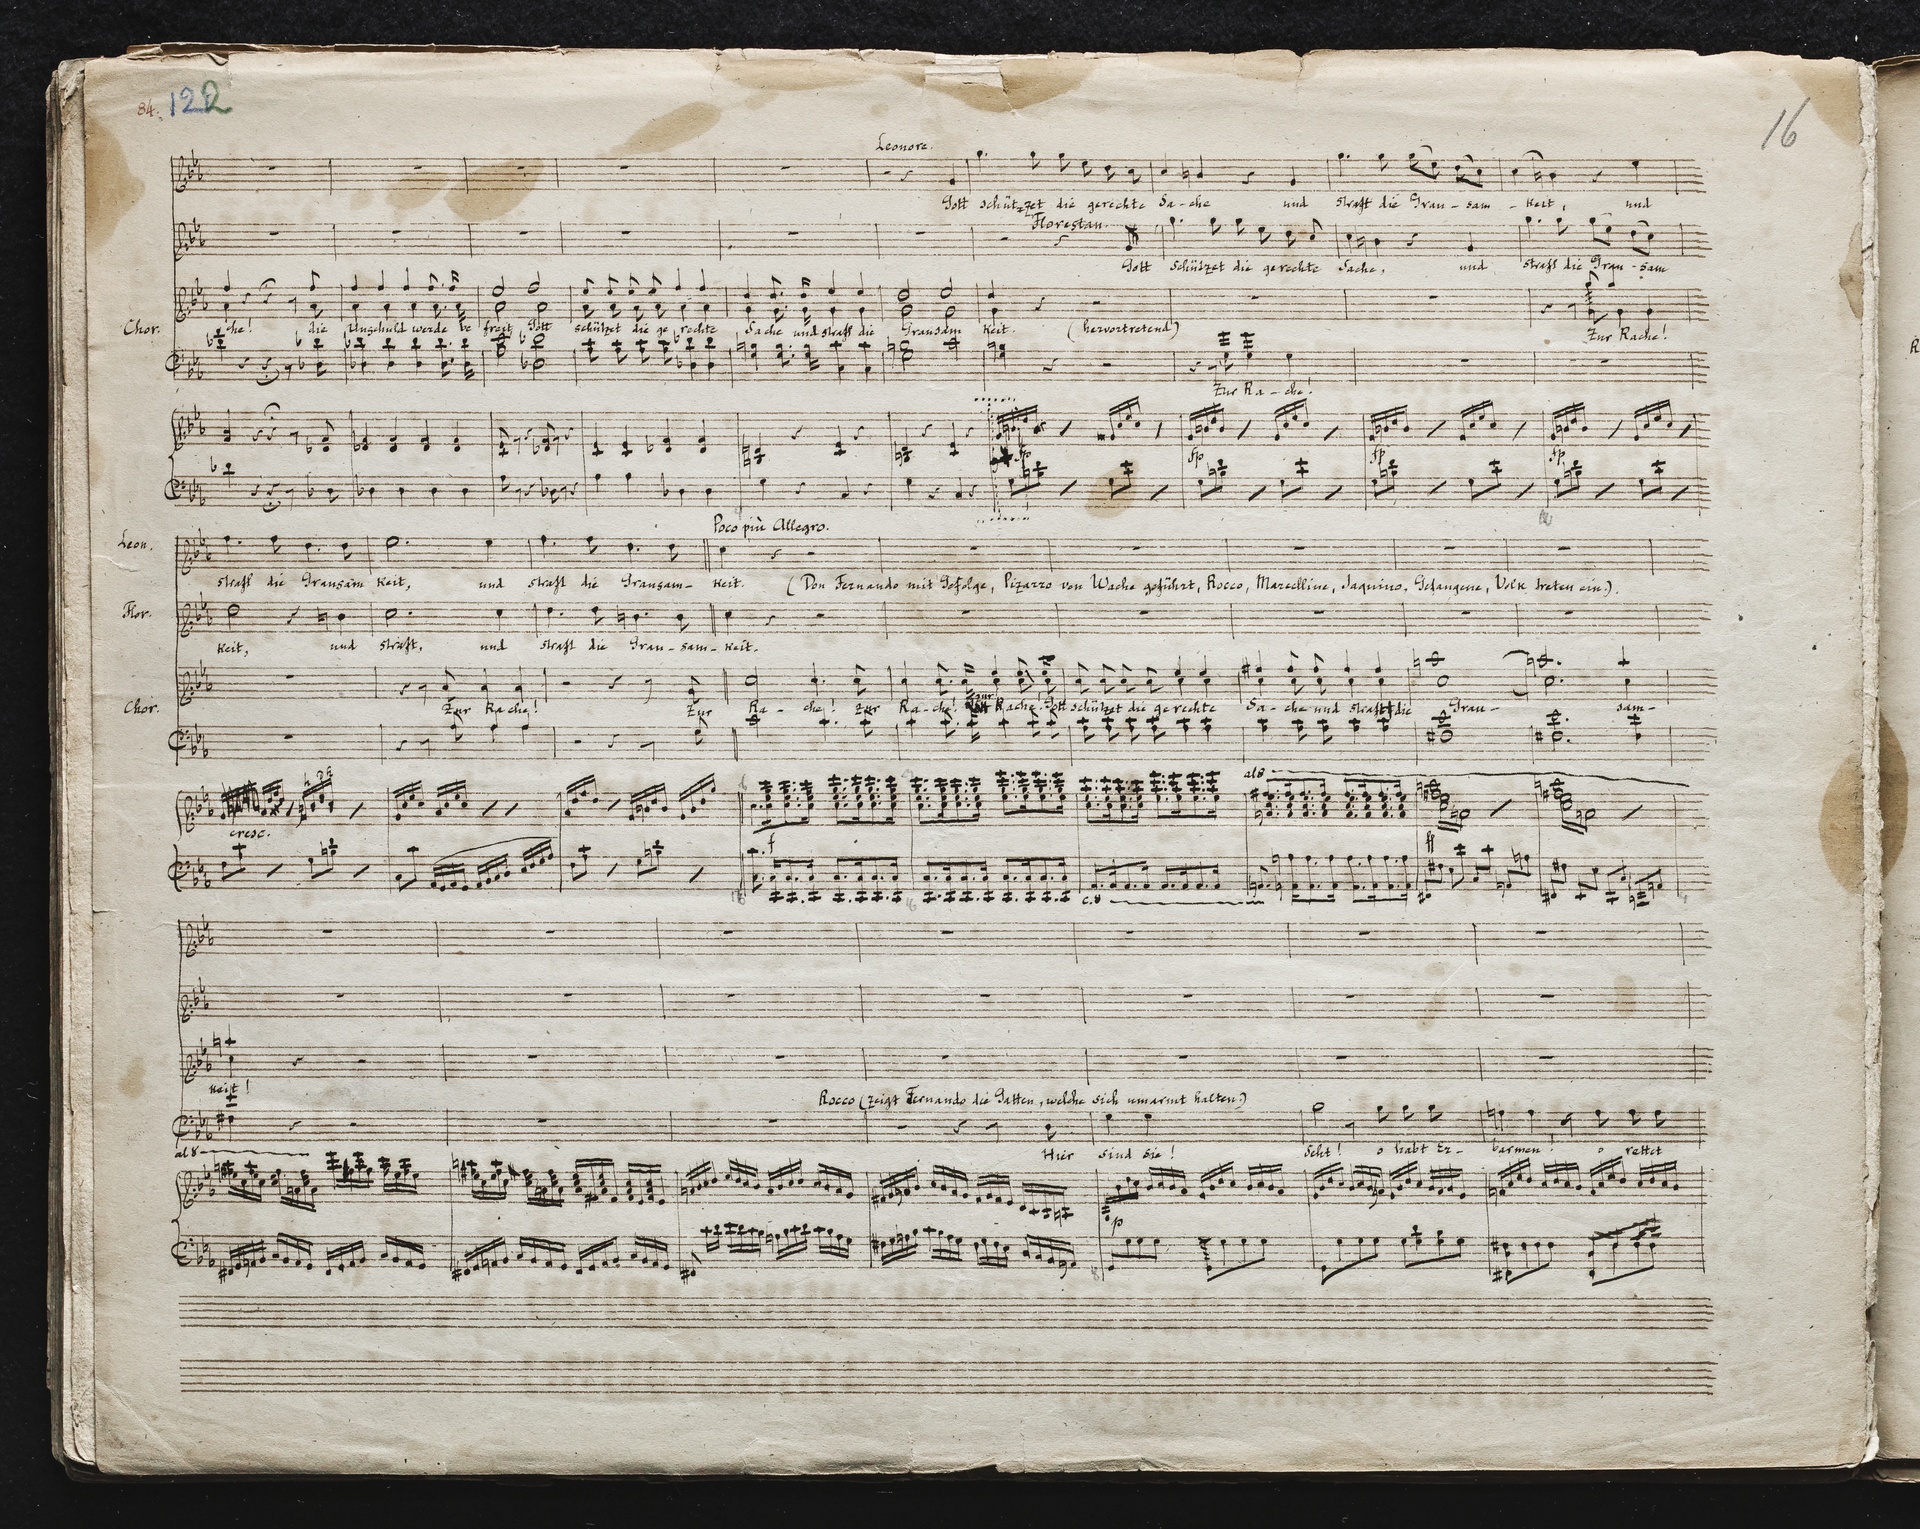 84. 122
16
Leonore.
Gott schützet die gerechte Sa-che und straft die Grau-sam-keit, und
Florestan.
Gott schützet die gerechte Sache, und straft die Grau-sam
Chor. che! die Unschuld werde be freit Gott schützet die ge rechte Sache und straft die Grausam keit. (hervortretend) Zur Rache!
Zur Ra-che!
fp fp fp fp
Poco più Allegro.
Leon.
straft die Grausam keit, und straft die Grausam-keit. (Don Fernando mit Gefolge, Pizarro von Wache geführt, Rocco, Marcelline, Jaquino, Gefangene, Volk treten ein.)
Flor.
keit, und straft, und straft die Grau-sam-keit.
Chor. Zur Rache! Zur Ra-che! zur Ra-che! zur Rache! Gott schützet die gerechte Sa-che und straft die Grau-sam-
al 8
cresc.
f ff
c. 8
keit!
Rocco (zeigt Fernando die Gatten, welche sich umarmt halten.)
al 8 Hier sind sie! Seht! o habt Er-barmen! o rettet
p